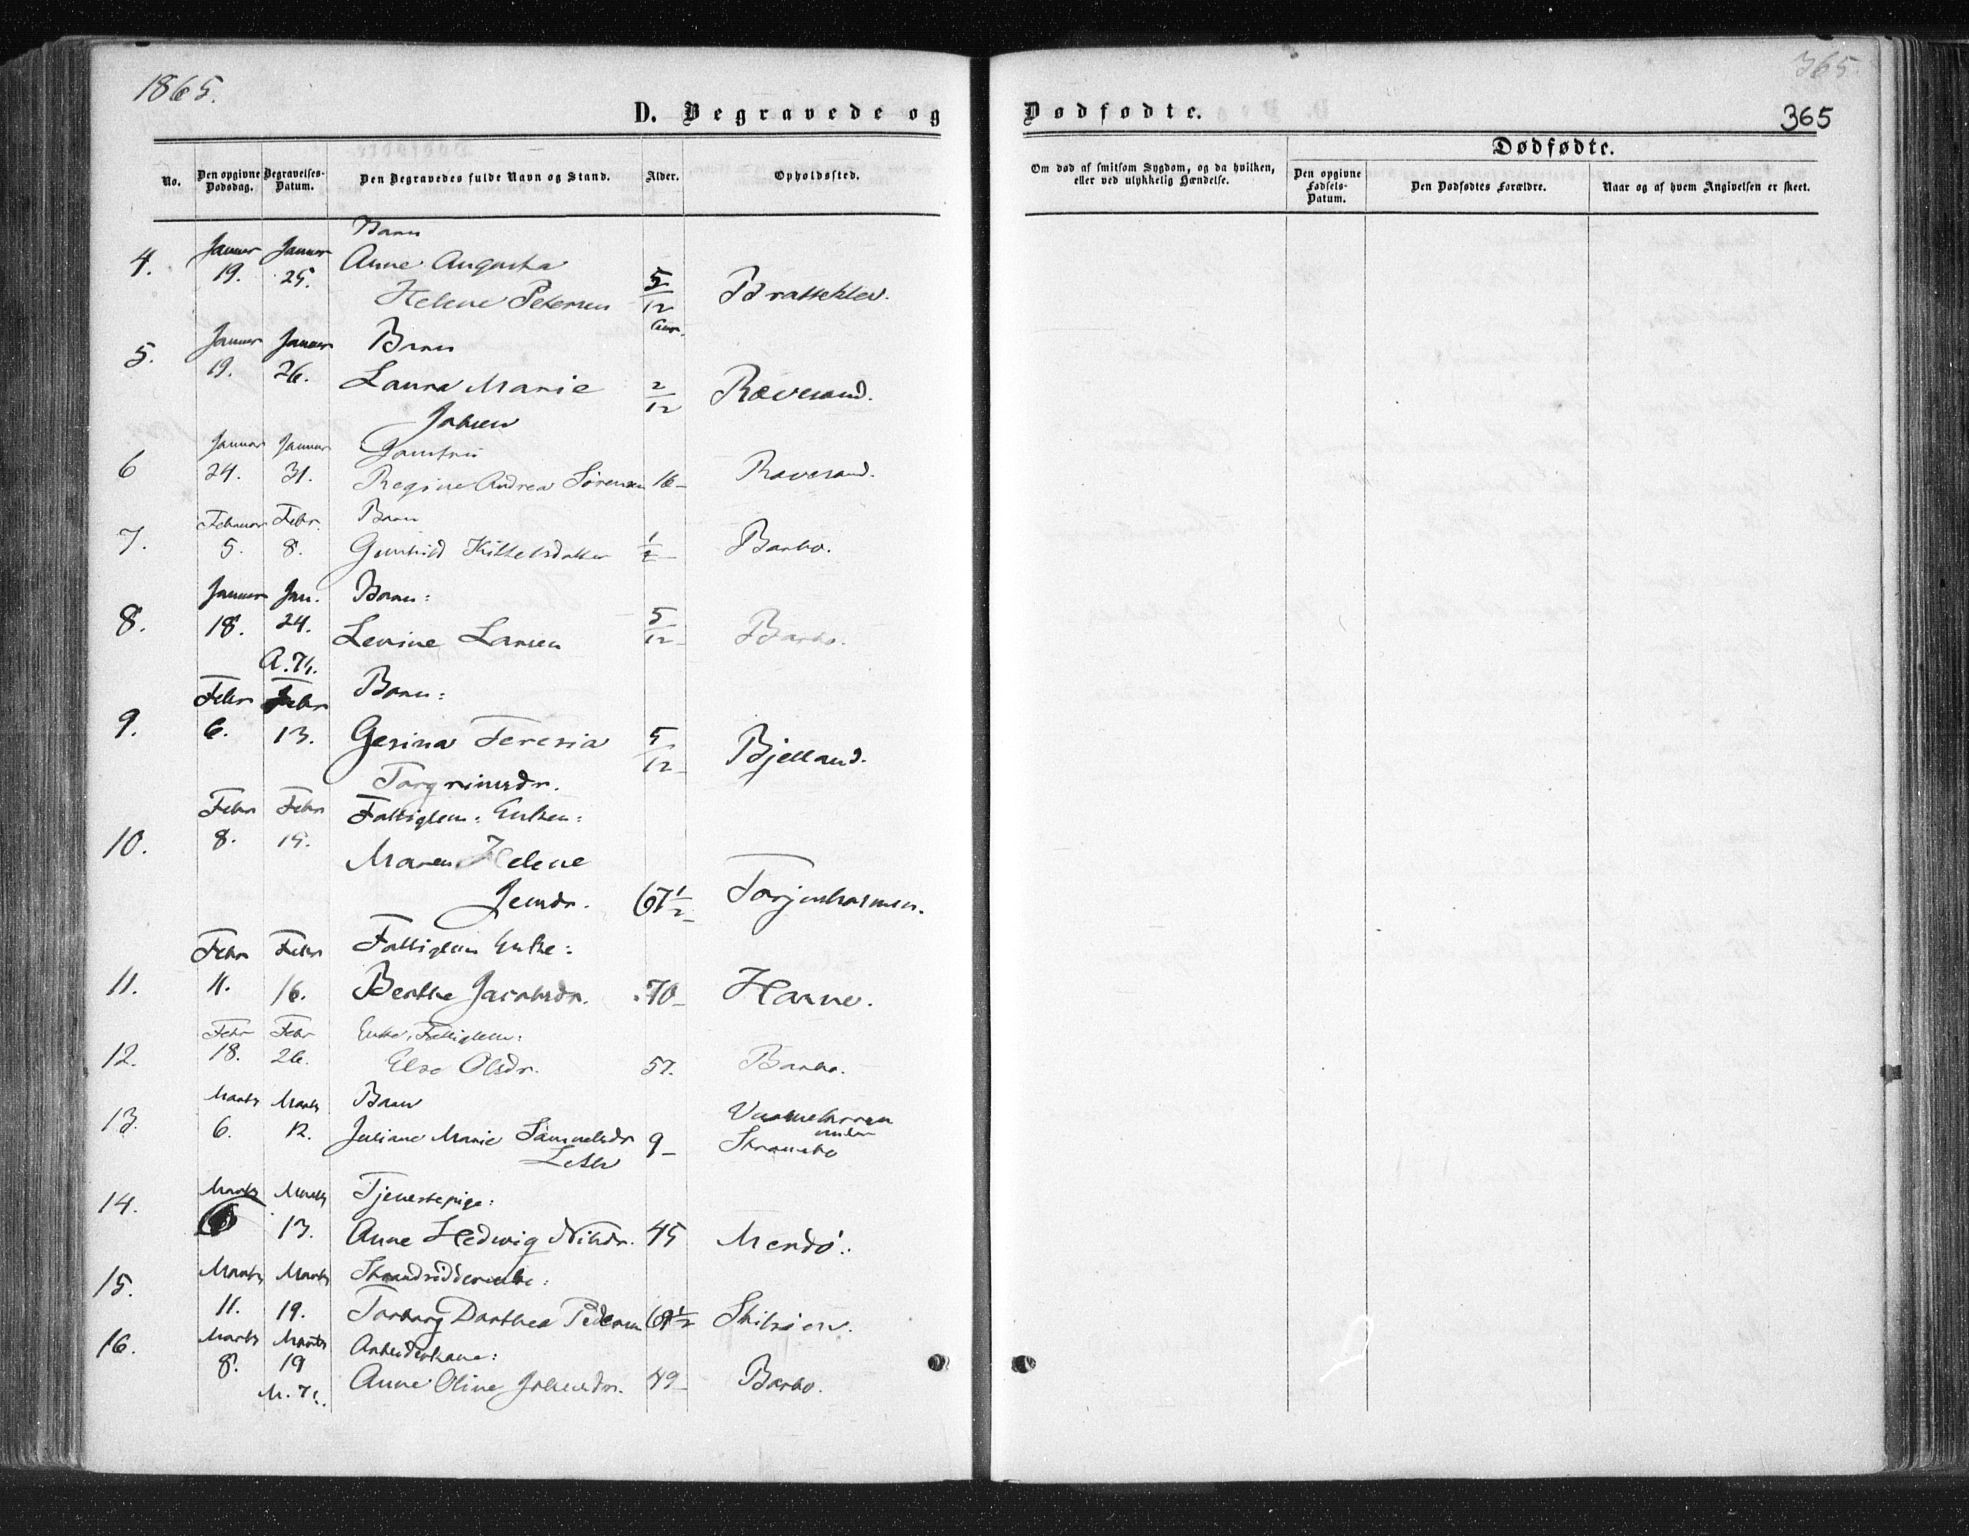 1865.
365.
D. Begravede og Dødfødte.
365
No.
Den opgivne Dødsdag.
Begravelses-Datum.
Den Begravedes fulde Navn og Stand.
Alder.
Opholdssted.
Om død af smitsom Sygdom, og da hvilken, eller ved ulykkelig Hændelse.
Dødfødte.
Den opgivne Fødsels-Datum.
Den Dødfødtes Forældre.
Naar og af hvem Angivelsen er skeet.
Barn
4. Januar 19. Januar 25. Anne Augusta
Helene Petersen 5/12 Bratteklev.
Aar.
5. Januar 19. Januar 26. Barn
Laura Marie 2/12 Rævesand.
Jahsen
6 Januar 24. Januar 31. Jomfru
Regine Andrea Sørensen 16 Ravesand.
7. Februar 5. Febr. 8. Barn
Gunhild Kittelsdatter 1/2 Barbo.
8. Januar 18. Jan. 24. Barn:
Levine Larsen 5/12 Barbo.
A. Th.
9. Febr 6. Febr 13. Barn:
Gesina Teresia 5/12 Bjelland.
Torgrimsdr.
10. Febr 8. Febr 15. Fattiglem: Enken:
Maren Helene
Jensdr. 67 1/2 Torjusholmen.
11. Febr 11. Febr 16. Fattiglem Enke:
Berthe Jacobsdr. 70 Hasne.
12. Febr 18. Febr 26. Enke, Fattiglem:
Else Olsdr. 57. Barbo.
13. Marts 6. Marts 12. Barn
Juliane Marie Samuelsdr 9
under
14. Marts Marts 13. Tjenestepige:
Anne Hedwig Nilsdr. 45 Merdø.
15. Marts 11. Marts 19. Strandsidderenke:
Torborg Dorthea Pedersen Skilsøen.
16. Marts 8. Marts 19 Arbeiderkone:
Anne Oline Johnsdr. 49 Barbo.
M. Th.